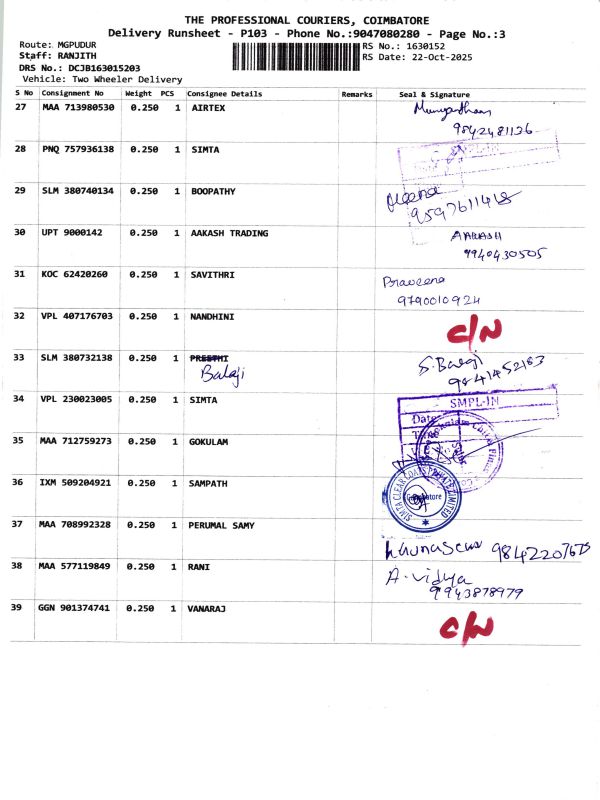 THE PROFESSIONAL COURIERS, COIMBATORE
Delivery Runsheet - P103 - Phone No.:9047080280 - Page No.:3
Route: MGPUDUR RS No.: 1630152
Staff: RANJITH RS Date: 22-Oct-2025
DRS No.: DCJB163015203
Vehicle: Two Wheeler Delivery
S No Consignment No Weight PCS Consignee Details Remarks Seal & Signature
27 MAA 713980530 0.250 1 AIRTEX
9842481126
28 PNQ 757936138 0.250 1 SIMTA
SMPL-IN
29 SLM 380740134 0.250 1 BOOPATHY Meena
9597611418
30 UPT 9000142 0.250 1 AAKASH TRADING AAKASH
9940430505
31 KOC 62420260 0.250 1 SAVITHRI Praveena
9790010924
32 VPL 407176703 0.250 1 NANDHINI C/N
33 SLM 380732138 0.250 1 PREETHI S. Balaji
Balaji 9841452163
34 VPL 230023005 0.250 1 SIMTA SMPL-IN
Date
Time
35 MAA 712759273 0.250 1 GOKULAM
36 IXM 509204921 0.250 1 SAMPATH SIMTA CLEAR COATS PRIVATE LIMITED
Coimbatore
37 MAA 708992328 0.250 1 PERUMAL SAMY
38 MAA 577119849 0.250 1 RANI A. Vidya
9943878979
39 GGN 901374741 0.250 1 VANARAJ C/N